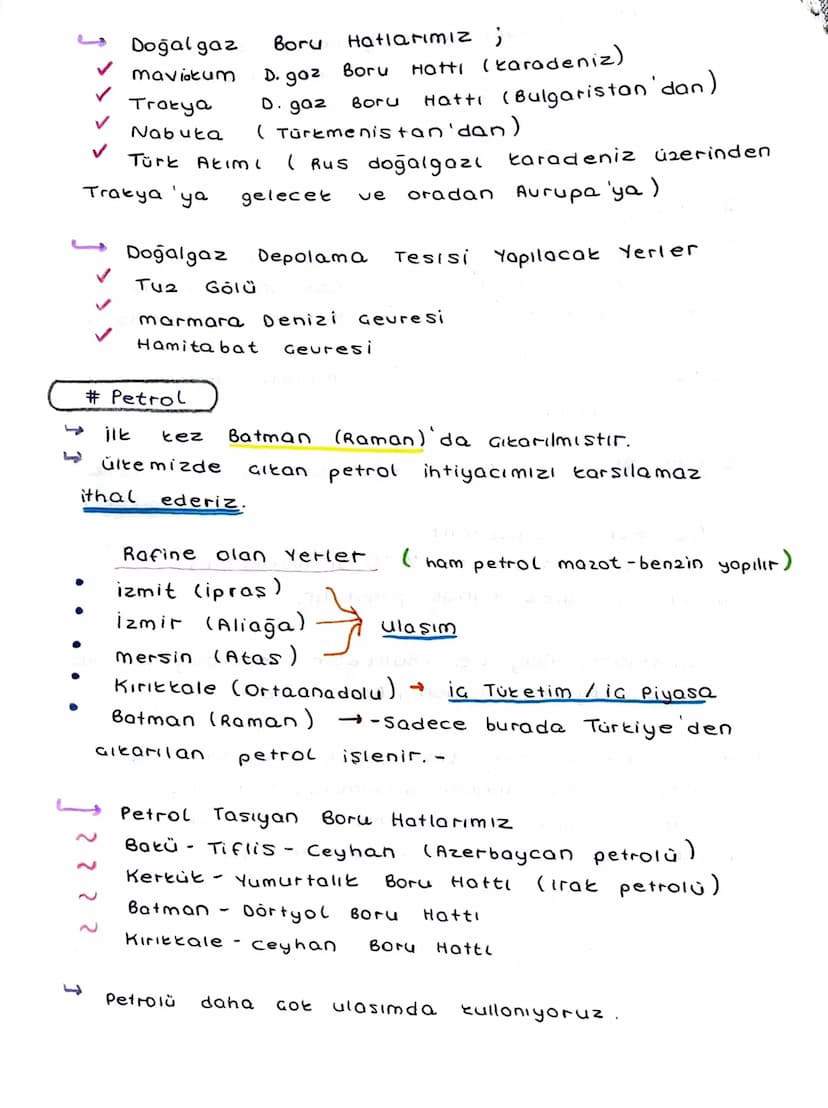 Doğalgaz Boru Hatlarımız ;
✓ maviakım D. gaz Boru Hattı (karadeniz)
✓ Trakya D. gaz Boru Hattı (Bulgaristan'dan)
✓ Nabuka (Türkmenistan'dan)
✓ Türk Akımı (Rus doğalgazı karadeniz üzerinden
Trakya'ya gelecek ve oradan Avrupa'ya)
Doğalgaz Depolama Tesisi Yapılacak Yerler
✓ Tuz Gölü
✓ marmara Denizi Çevresi
✓ Hamitabat Çevresi
# Petrol
ilk kez Batman (Raman)'da çıkarılmıştır.
ülkemizde çıkan petrol ihtiyacımızı karşılamaz
ithal ederiz.
Rafine olan Yerler (ham petrol mazot-benzin yapılır)
• izmit (ipraş)
• İzmir (Aliağa) ulaşım
• mersin (Ataş)
• Kırıkkale (Ortaanadolu) → iç Tüketim / iç Piyasa
• Batman (Raman) → -Sadece burada Türkiye'den
çıkarılan petrol işlenir. -
Petrol Taşıyan Boru Hatlarımız
~ Bakü - Tiflis - Ceyhan (Azerbaycan petrolü)
~ Kerkük - Yumurtalık Boru Hattı (ırak petrolü)
~ Batman - Dörtyol Boru Hattı
~ Kırıkkale - Ceyhan Boru Hattı
Petrolü daha çok ulaşımda kullanıyoruz.